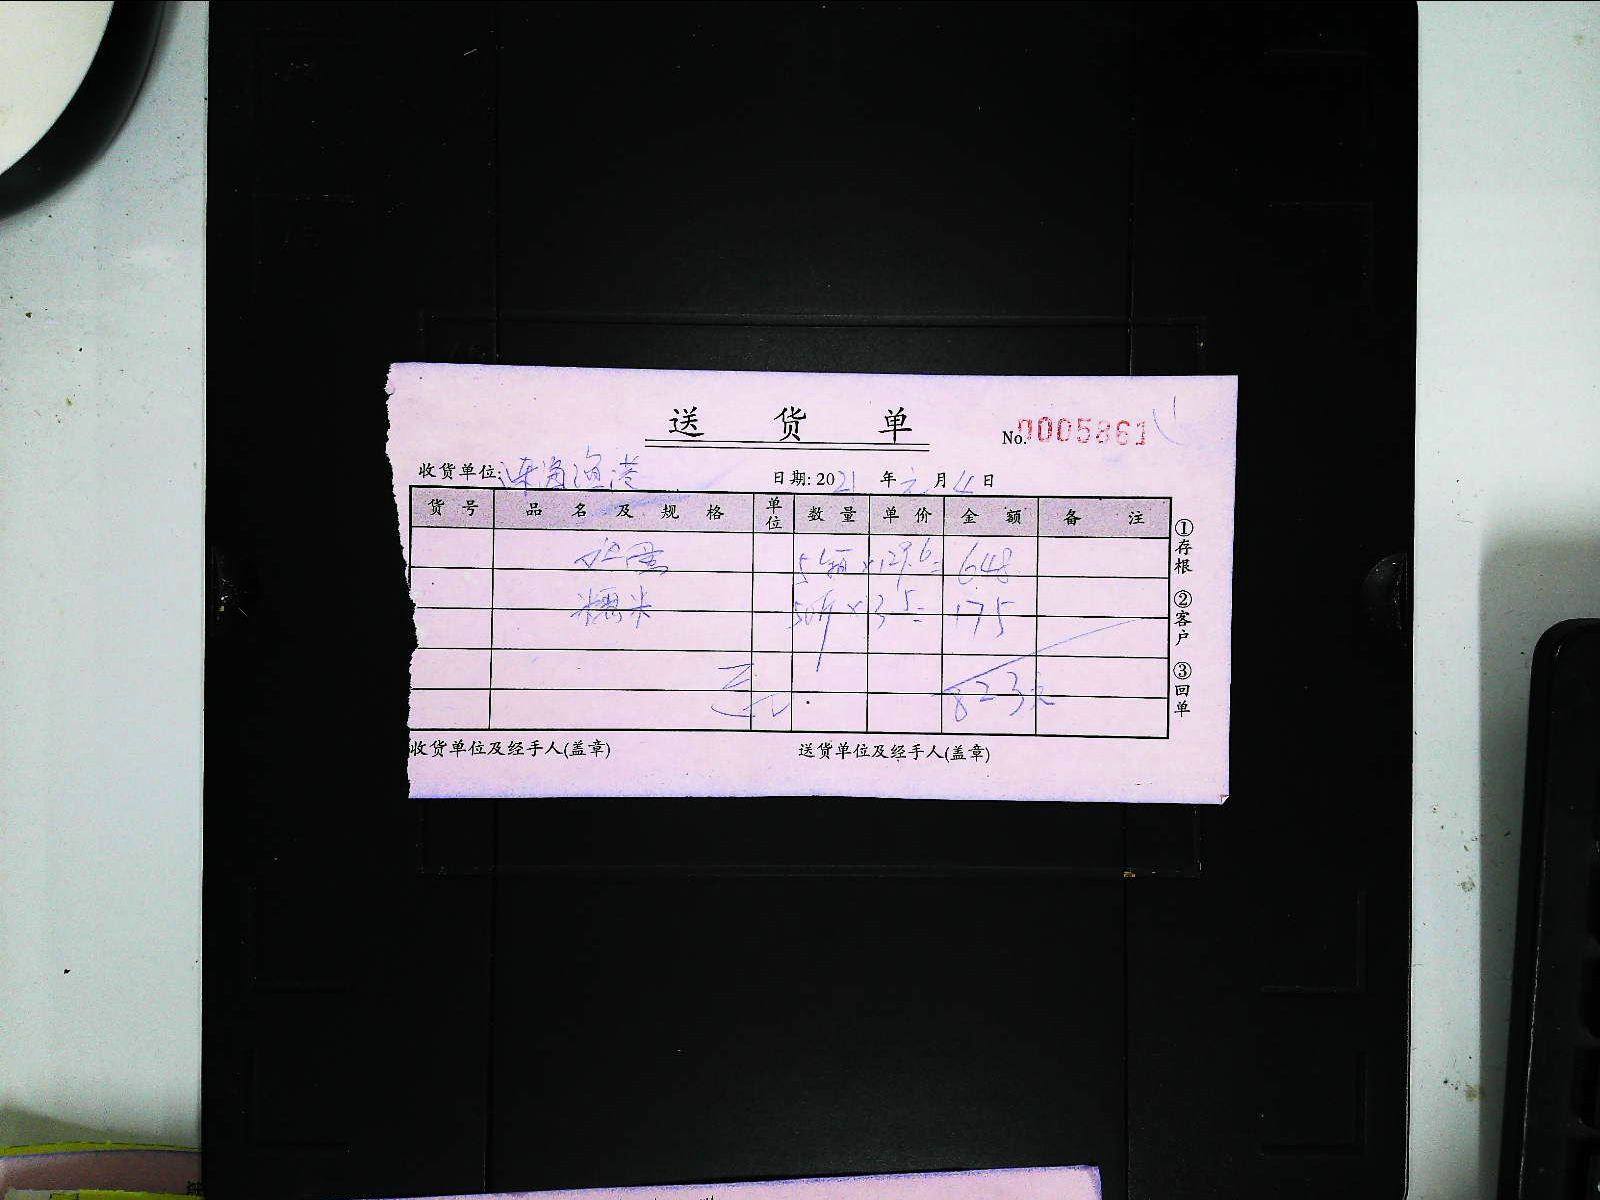 送 货 单
No.0005861
收货单位: 连海渔港 日期: 2021 年 元 月 4 日
货 号 品 名 及 规 格 单位 数 量 单 价 金 额 备 注
5箱 × 129.6 = 648
糯米 50斤 × 3.5 = 175
823元
收货单位及经手人(盖章) 送货单位及经手人(盖章)
①存根 ②客户 ③回单